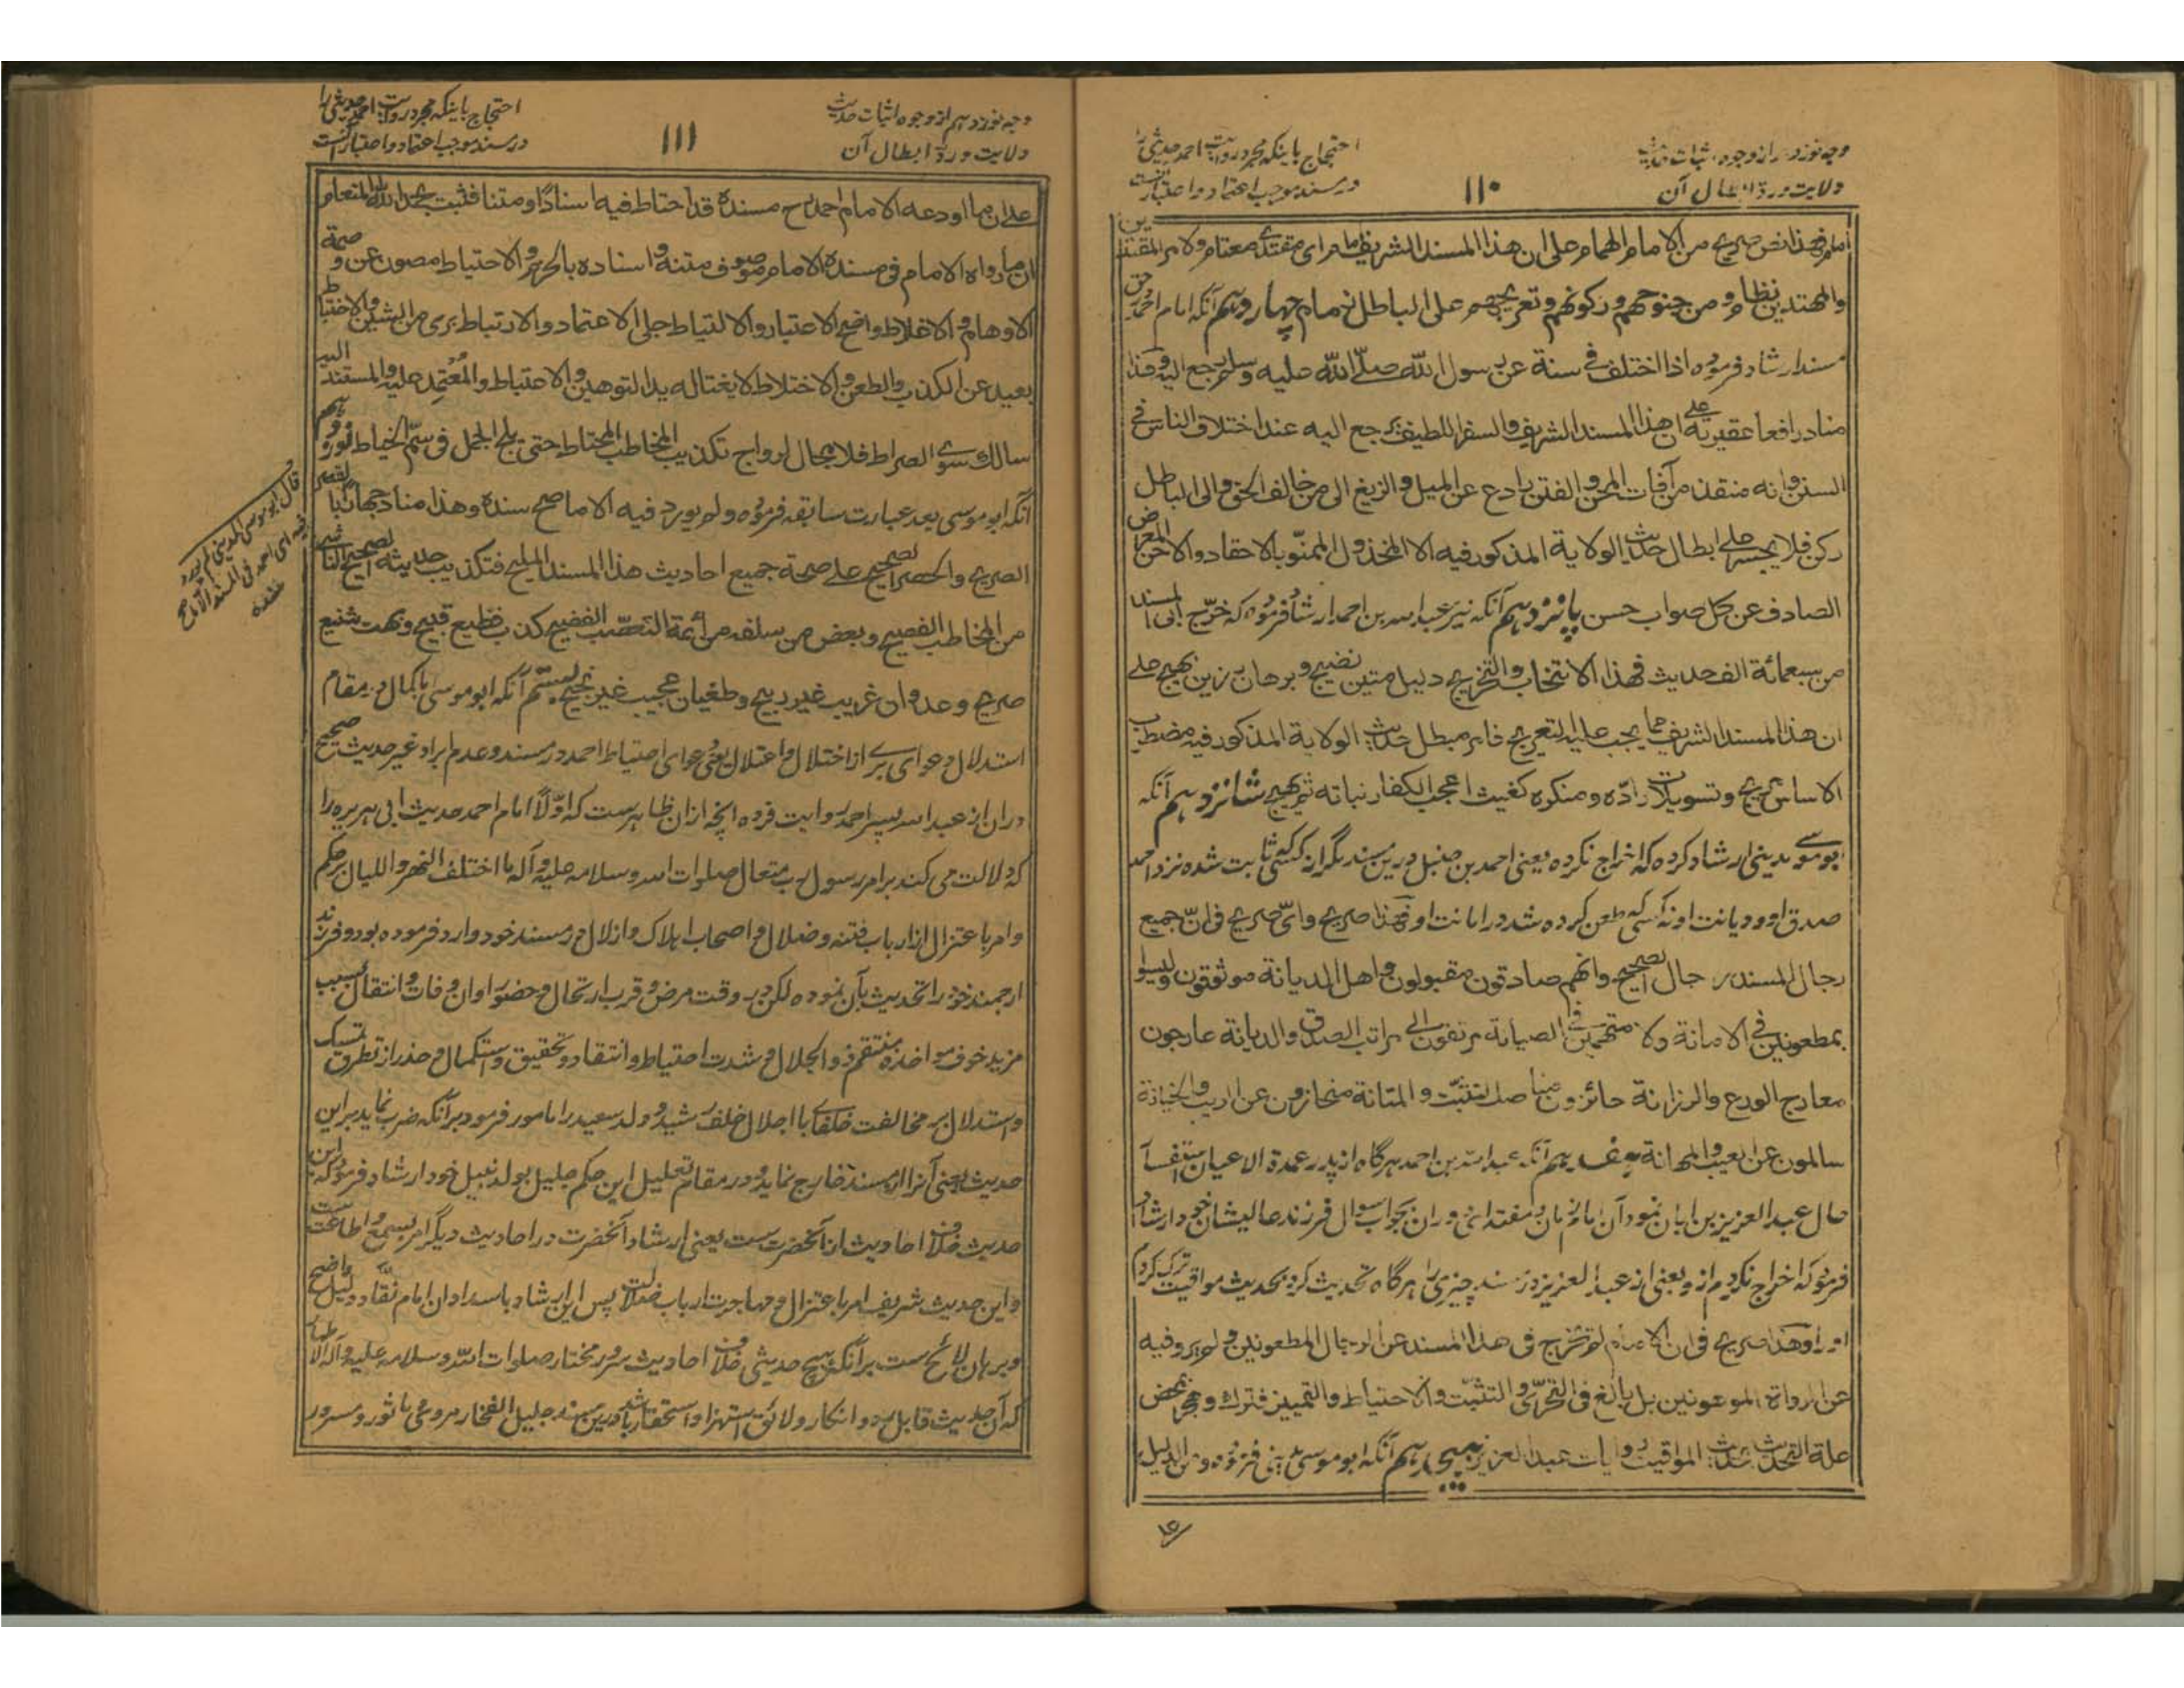 وجه نوزدهم از وجوه اثبات حدیث
ولایت و ردّ ابطال آن
۱۱۰
احتجاج باینکه مجرد روایت احمد حدیثی را
در مسند موجب اعتماد و اعتبار آنست
امام فهذا نص صریح من الامام الهمام علی ان هذا المسند الشریف امام رای مقتدی معتام ولامر المقتدین
والمهتدین نظام و من جنوحهم و رکونهم و تعریجهم علی الباطل زمام چهاردهم آنکه امام احمد در حق
مسند ارشاد فرموده اذا اختلف فی سنة عن رسول الله صلّی الله علیه وسلم رجع الیه و هذا
مناد رافعا عقیرته علی ان هذا المسند الشریف والسفر اللطیف یرجع الیه عند اختلاف الناس فی
السنن وانه منقذ من آفات المحن و الفتن رادع عن المیل و الزیغ الی من خالف الحق والی الباطل
رکن فلا یجسر علی ابطال حدیث الولایة المذکور فیه الا المخذول الممنّو بالاحقاد والاحن المعرض
الصادف عن کل صواب حسن پانزدهم آنکه نیز عبدالله بن احمد ارشاد فرموده که خرّج ابی المسند
من سبعمائة الف حدیث فهذا الانتخاب والتخریج دلیل متین نضیج و برهان رزین بهیج علی
ان هذا المسند الشریف مما یجب علیه التعریج فامر مبطل حدیث الولایة المذکور فیه مضطرب
الاساس مریج و تسویلات رادّه و منکره کغیث اعجب الکفار نباته ثم یهیج شانزدهم آنکه
ابوموسی مدینی ارشاد کرده که اخراج نکرده یعنی احمد بن حنبل درین مسند مگر از کسی که ثابت شده نزد احمد
صدق او و دیانت او نه کسی که طعن کرده شد در امانت او فهذا صریح وایّ صریح فی انّ جمیع
رجال المسند رجال الصحیح وانهم صادقون مقبولون و اهل الدیانة موثوقون ولیسوا
بمطعونین فی الامانة ولا متهمین فی الصیانة مرتقون الی مراتب الصدق والدیانة عارجون
معارج الورع والرزانة حائزون مناصل التثبّت و المتانة منحازون عن الریب والخیانة
سالمون عن العیب والمهانة هفدهم آنکه عبدالله بن احمد هرگاه از پدر عمدة الاعیان استفسار
حال عبدالعزیز بن ابان نمود آن امام زمان و مقتدای دوران بجواب سوال فرزند عالیشان خود ارشاد
فرموده که اخراج نکردم ازو یعنی از عبدالعزیز در مسند چیزی را هرگاه تحدیث کرد بحدیث مواقیت ترک کردم
او را وهذا صریح فی ان الامام لم یخرج فی هذا المسند عن الرجال المطعونین و لم یرو فیه
عن الرواة الموهونین بل بالغ فی التحرّی و التثبّت والاحتیاط والتمییز فترک و هجر بمحض
علة التحدیث بحدیث المواقیت روایات عبدالعزیز هیجدهم آنکه ابوموسی مدینی فرموده ومن الدلیل
وجه نوزدهم از وجوه اثبات حدیث
ولایت و ردّ ابطال آن
۱۱۱
احتجاج باینکه مجرد روایت احمد حدیثی را
در مسند موجب اعتماد و اعتبار آنست
علی ان ما اودعه الامام احمد رح مسنده قد احتاط فیه اسنادًا و متنا فثبت بحمد الله المتعام
ان ما رواه الامام فی مسنده الامام موصوف متنه و اسناده بالحزم والاحتیاط مصون عن وصمة
الاوهام و الاغلاط واضح الاعتبار والالتیاط جلی الاعتماد والارتباط بری من الشین والاختباط
بعید عن الکذب والطعن والاختلاط لا یغتاله ید التوهین والاحتیاط والمعتمد علیه والمستند الیه
سالک سویّ الصراط فلا مجال لرواج تکذیب المخاطب المحتاط حتی یلج الجمل فی سمّ الخیاط نوزدهم
آنکه ابوموسی بعد عبارت سابقه فرموده ولم یورد فیه الا ما صح سنده وهذا مناد جهارًا بالنص
الصریح والحصر الصحیح علی صحة جمیع احادیث هذا المسند الملیح فتکذیب حدیثه الصحیح الناشی
من المخاطب الفصیح و بعض من سلفه من أئمة التعصّب الفضیح کذب فظیع قبیح و بهت شنیع
صریح و عدوان غریب غیر ربیح و طغیان عجیب غیر نجیح بستم آنکه ابوموسی بکمال در مقام
استدلال دعوای بری از اختلال و اعتلال یعنی دعوای احتیاط احمد در مسند و عدم ایراد غیر حدیث صحیح
دران از عبدالله پسر احمد روایت فرده آنچه ازان ظاهرست که اوّلاً امام احمد حدیث ابی هریره را
که دلالت می کند بر امر رسول رب متعال صلوات الله وسلامه علیه وآله ما اختلف النهر و اللیال بر حکم
وامر باعتزال از ارباب فتنه و ضلال و اصحاب اهلاک و ازلال در مسند خود وارد فرموده بود و فرزند
ارجمند خود را تحدیث بآن نموده لکن در وقت مرض و قرب ارتحال و حضور اوان وفات و انتقال بسبب
مزید خوف مواخذه منتقم ذو الجلال و شدت احتیاط و انتقاد و تحقیق و استکمال و حذر از تطرق تمسک
و استدلال بر مخالفت خلفای با اجلال خلف رشید و ولد سعید را مامور فرمود بر آنکه ضرب نماید برین
حدیث یعنی آنرا از مسند خارج نماید و در مقام تعلیل این حکم جلیل بولد نبیل خود ارشاد فرموده که این
حدیث خلاف احادیث از آنحضرتست یعنی ارشاد آنحضرت در احادیث دیگر امر بسمع و اطاعت ست
و این حدیث شریف امر باعتزال و مهاجرت ارباب ضلالت پس این ارشاد باسداد ان امام نقاد دلیل واضح
و برهان لائح ست بر آنکه هیچ حدیثی خلاف احادیث سرور مختار صلوات الله وسلامه علیه وآله الاطهار
که آن حدیث قابل رد و انکار و لائق استهزا و استحقار باشد درین مسند جلیل الفخار مروی ماثور و مسرور
قال ابوموسی المدینی لم یورد
فیه ای احمد فی المسند الا ما صح
سنده